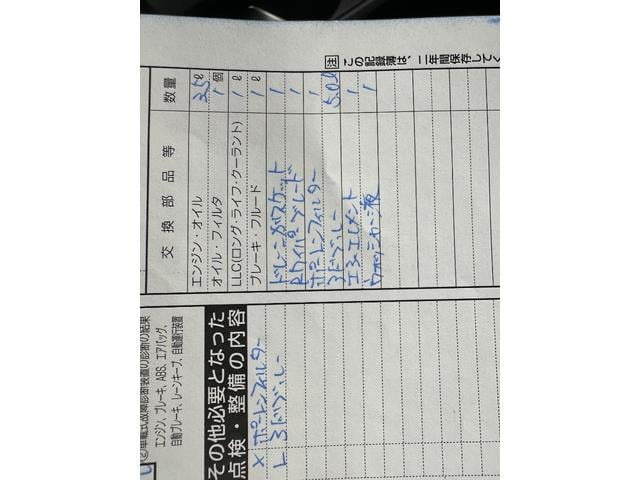 車載式故障診断装置の診断の結果
エンジン、ブレーキ、ABS、エアバッグ、
自動ブレーキ、レーンキープ、自動運行装置
その他必要となった
点検・整備の内容
× フィルター
交換部品等 数量
エンジン・オイル 3.5ℓ
オイル・フィルタ 1個
LLC(ロング・ライフ・クーラント) 1ℓ
ブレーキ・フルード 1ℓ
ドレーンガスケット 1
Rワイパーブレード 1
フィルター 1
5.0ℓ
エアーエレメント 1
ウォッシャー液 1
注 この記録簿は、二年間保存して